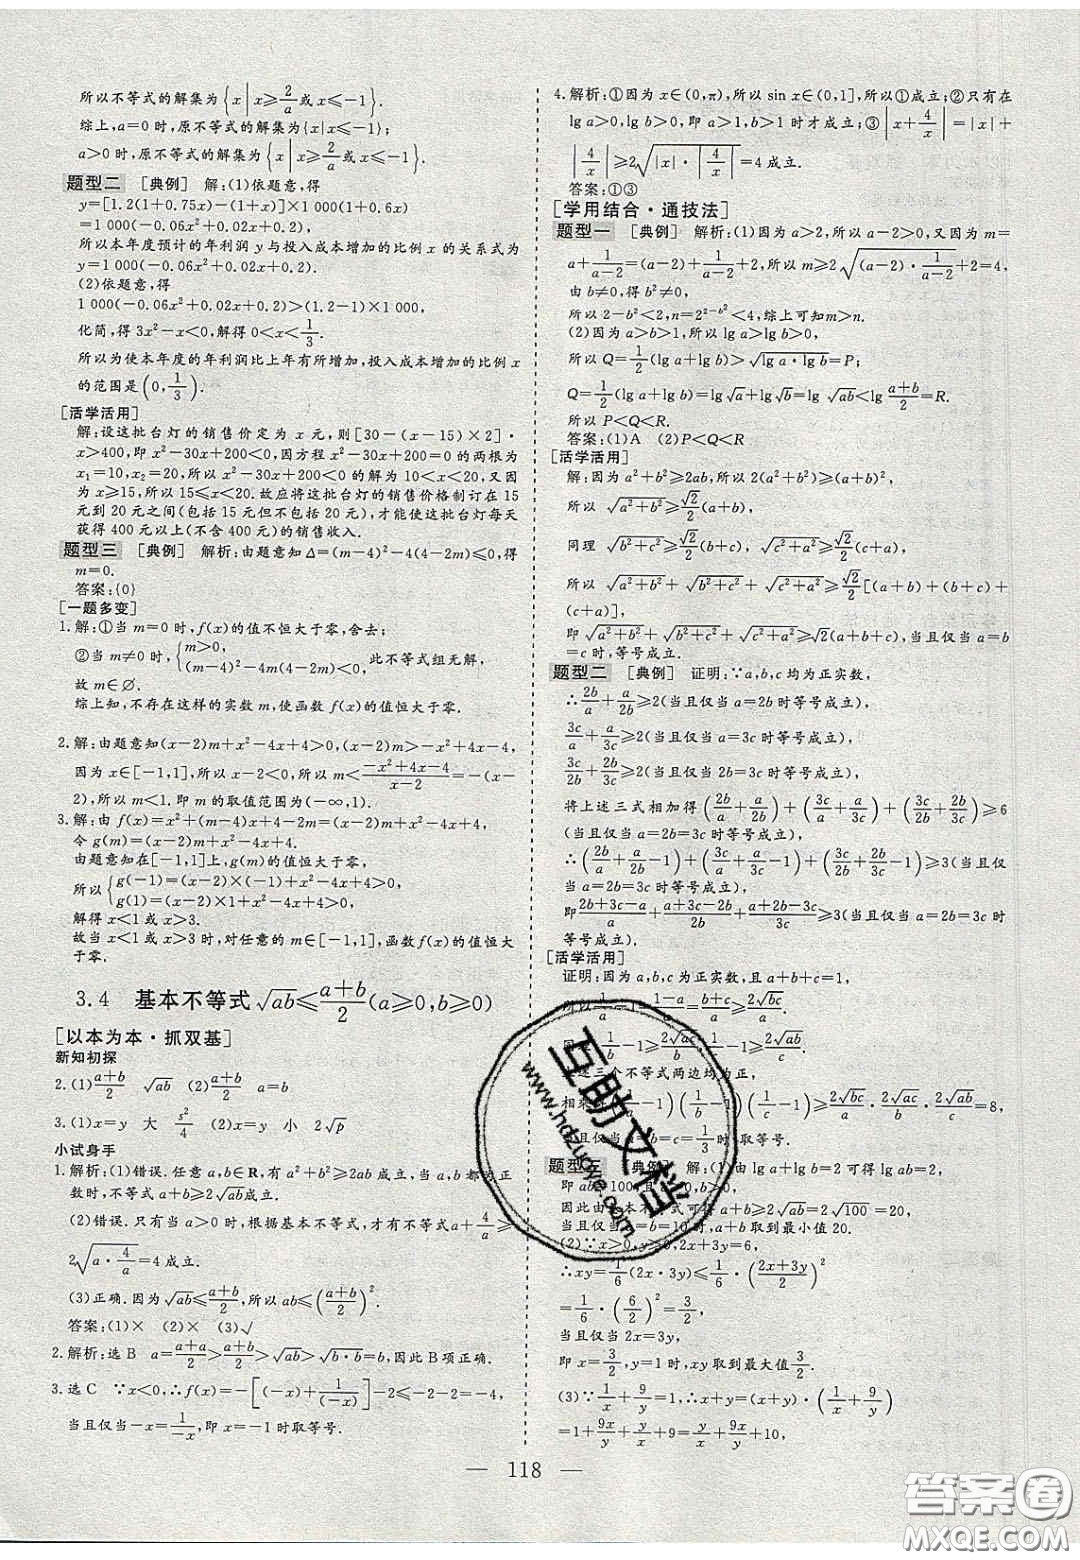 所以不等式的解集为{x|x≥2/a或x≤-1}.
综上,a=0时,原不等式的解集为{x|x≤-1};
a>0时,原不等式的解集为{x|x≥2/a或x≤-1}.
题型二 [典例] 解:(1)依题意,得
y=[1.2(1+0.75x)-(1+x)]×1 000(1+0.6x)
=1 000(-0.06x²+0.02x+0.2).
所以本年度预计的年利润y与投入成本增加的比例x的关系式为
y=1 000(-0.06x²+0.02x+0.2).
(2)依题意,得
1 000(-0.06x²+0.02x+0.2)>(1.2-1)×1 000.
化简,得3x²-x<0,解得0<x<1/3.
所以为使本年度的年利润比上年有所增加,投入成本增加的比例x
的范围是(0,1/3).
[活学活用]
解:设这批台灯的销售价定为x元,则[30-(x-15)×2]·
x>400,即x²-30x+200<0,因方程x²-30x+200=0的两根为
x₁=10,x₂=20,所以x²-30x+200<0的解为10<x<20,又因
为x≥15,所以15≤x<20.故应将这批台灯的销售价格制订在15
元到20元之间(包括15元但不包括20元),才能使这批台灯每天
获得400元以上(不含400元)的销售收入.
题型三 [典例] 解析:由题意知Δ=(m-4)²-4(4-2m)≤0,得
m=0.
答案:{0}
[一题多变]
1.解:①当m=0时,f(x)的值不恒大于零,舍去;
②当m≠0时,{m>0, (m-4)²-4m(4-2m)<0, 此不等式组无解,
故m∈∅.
综上知,不存在这样的实数m,使函数f(x)的值恒大于零.
2.解:由题意知(x-2)m+x²-4x+4>0,(x-2)m>-x²+4x-4,
因为x∈[-1,1],所以x-2<0,所以m<(-x²+4x-4)/(x-2)=-(x-
2),所以m<1.即m的取值范围为(-∞,1).
3.解:由f(x)=x²+(m-4)x+4-2m=(x-2)m+x²-4x+4,
令g(m)=(x-2)m+x²-4x+4.
由题意知在[-1,1]上,g(m)的值恒大于零,
所以{g(-1)=(x-2)×(-1)+x²-4x+4>0, g(1)=(x-2)×1+x²-4x+4>0,
解得x<1或x>3.
故当x<1或x>3时,对任意的m∈[-1,1],函数f(x)的值恒大
于零.
3.4 基本不等式√ab≤(a+b)/2(a≥0,b≥0)
[以本为本·抓双基]
新知初探
2.(1)(a+b)/2 √ab (2)(a+b)/2 a=b
3.(1)x=y 大 s²/4 (2)x=y 小 2√p
小试身手
1.解析:(1)错误.任意a,b∈R,有a²+b²≥2ab成立,当a,b都为正
数时,不等式a+b≥2√ab成立.
(2)错误.只有当a>0时,根据基本不等式,才有不等式a+4/a≥
2√(a·4/a)=4成立.
(3)正确.因为√ab≤(a+b)/2,所以ab≤((a+b)/2)².
答案:(1)× (2)× (3)√
2.解析:选B a=(a+a)/2>(a+b)/2>√ab>√(b·b)=b,因此B项正确.
3.选C ∵x<0,∴f(x)=-[(-x)+1/(-x)]-2≤-2-2=-4,
当且仅当-x=1/(-x),即x=-1时取等号.
4.解析:①因为x∈(0,π),所以sin x∈(0,1],所以①成立;②只有在
lg a>0,lg b>0,即a>1,b>1时才成立;③|x+4/x|=|x|+
|4/x|≥2√(|x|·|4/x|)=4成立.
答案:①③
[学用结合·通技法]
题型一 [典例] 解析:(1)因为a>2,所以a-2>0,又因为m=
a+1/(a-2)=(a-2)+1/(a-2)+2,所以m≥2√((a-2)·1/(a-2))+2=4,
由b≠0,得b²≠0,
所以2-b²<2,n=2^(2-b²)<4,综上可知m>n.
(2)因为a>b>1,所以lg a>lg b>0,
所以Q=1/2(lg a+lg b)>√(lg a·lg b)=P;
Q=1/2(lg a+lg b)=lg √a+lg √b=lg √ab<lg (a+b)/2=R.
所以P<Q<R.
答案:(1)A (2)P<Q<R
[活学活用]
解:因为a²+b²≥2ab,所以2(a²+b²)≥(a+b)²,
所以√(a²+b²)≥√2/2(a+b),
同理√(b²+c²)≥√2/2(b+c),√(c²+a²)≥√2/2(c+a),
所以√(a²+b²)+√(b²+c²)+√(c²+a²)≥√2/2[(a+b)+(b+c)+
(c+a)],
即√(a²+b²)+√(b²+c²)+√(c²+a²)≥√2(a+b+c),当且仅当a=b
=c时,等号成立.
题型二 [典例] 证明:∵a,b,c均为正实数,
∴2b/a+a/2b≥2(当且仅当a=2b时等号成立),
3c/a+a/3c≥2(当且仅当a=3c时等号成立),
3c/2b+2b/3c≥2(当且仅当2b=3c时等号成立),
将上述三式相加得(2b/a+a/2b)+(3c/a+a/3c)+(3c/2b+2b/3c)≥6
(当且仅当a=2b=3c时等号成立),
∴(2b/a+a/2b-1)+(3c/a+a/3c-1)+(3c/2b+2b/3c-1)≥3(当且仅
当a=2b=3c时等号成立),
即(2b+3c-a)/a+(a+3c-2b)/2b+(a+2b-3c)/3c≥3(当且仅当a=2b=3c时
等号成立).
[活学活用]
证明:因为a,b,c为正实数,且a+b+c=1,
所以1/a-1=(1-a)/a=(b+c)/a≥2√bc/a.
-1≥2√ac/b, 1/c-1≥2√ab/c.
三个不等式两边均为正,
相乘 (1/b-1)(1/c-1)≥2√bc/a·2√ac/b·2√ab/c=8,
当且仅当 =b=c=1/3时,取等号.
题型三 [典例] 解:(1)由lg a+lg b=2可得lg ab=2,
即ab=100,且a>0,b>0,
因此由基本不等式可得a+b≥2√ab=2√100=20,
当且仅当a=b=10时,a+b取到最小值20.
(2)∵x>0,y>0,2x+3y=6,
∴xy=1/6(2x·3y)≤1/6·((2x+3y)/2)²
=1/6·(6/2)²=3/2,
当且仅当2x=3y,
即x=3/2,y=1时,xy取到最大值3/2.
(3)∵1/x+9/y=1,∴x+y=(x+y)·(1/x+9/y)
=1+9x/y+y/x+9=y/x+9x/y+10,
— 118 —
互助文档
www.hdzuoye.com
答案圈
MXQE.COM